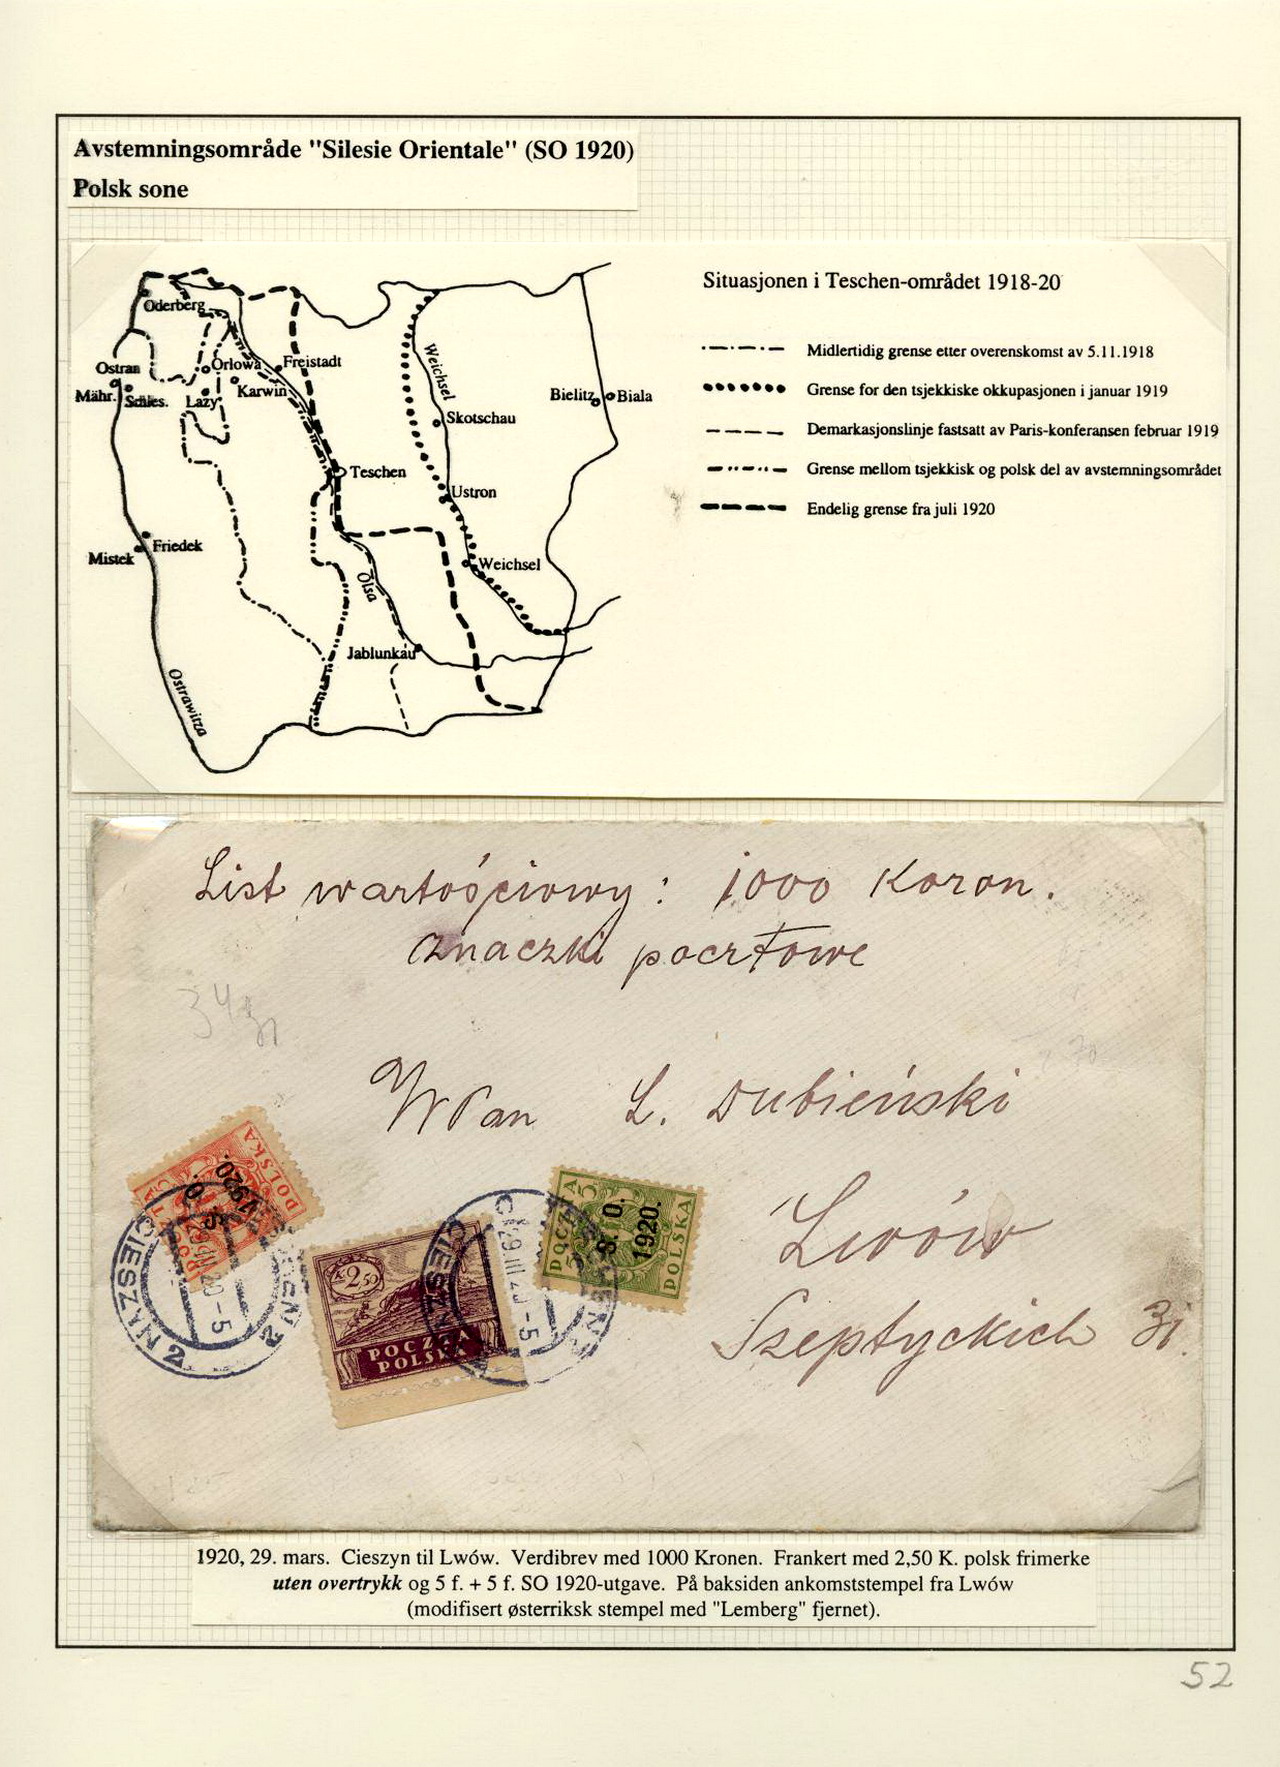 Avstemningsområde "Silesie Orientale" (SO 1920)
Polsk sone
Situasjonen i Teschen-området 1918-20
Midlertidig grense etter overenskomst av 5.11.1918
Grense for den tsjekkiske okkupasjonen i januar 1919
Demarkasjonslinje fastsatt av Paris-konferansen februar 1919
Grense mellom tsjekkisk og polsk del av avstemningsområdet
Endelig grense fra juli 1920
Oderberg
Ostrau
Orlowa
Freistadt
Mähr.
Schles.
Lazy
Karwin
Weichsel
Bielitz
Biala
Skotschau
Teschen
Ustron
Friedek
Mistek
Weichsel
Olsa
Jablunkau
Ostrawitza
List wartościowy: 1000 Koron.
znaczki pocztowe
WPan L. Dubieński
Lwów
Szeptyckich 31.
POCZTA
POLSKA
S. O.
1920.
CIESZYN 2
K 2 50
POCZTA
POLSKA
29 III 20 - 5
POCZTA
5
S. O.
1920.
POLSKA
1920, 29. mars. Cieszyn til Lwów. Verdibrev med 1000 Kronen. Frankert med 2,50 K. polsk frimerke
uten overtrykk og 5 f. + 5 f. SO 1920-utgave. På baksiden ankomststempel fra Lwów
(modifisert østerriksk stempel med "Lemberg" fjernet).
52